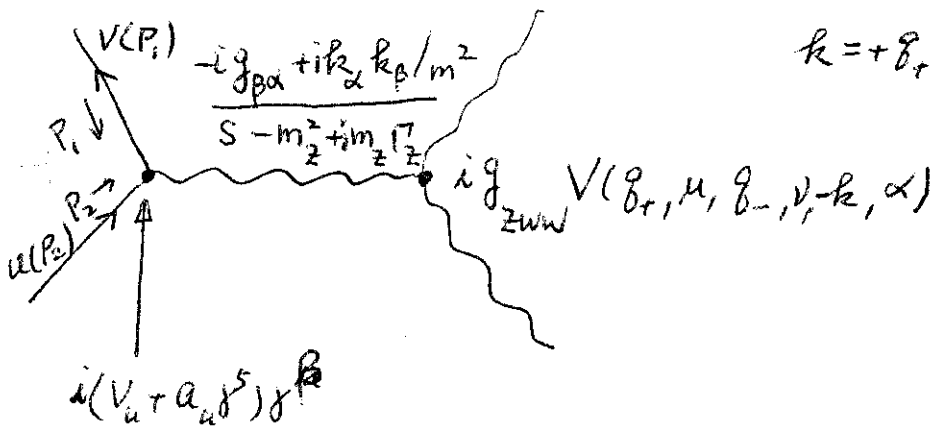 V(P₁)
-i g_{βα} + i k_α k_β / m²
k = + q₊
P₁ ↓
S - m_z² + i m_z Γ_z
P₂
u(P₂)
i g_{ZWW} V(q₊, μ, q₋, ν, -k, α)
i(V_u + a_u γ⁵) γ^β